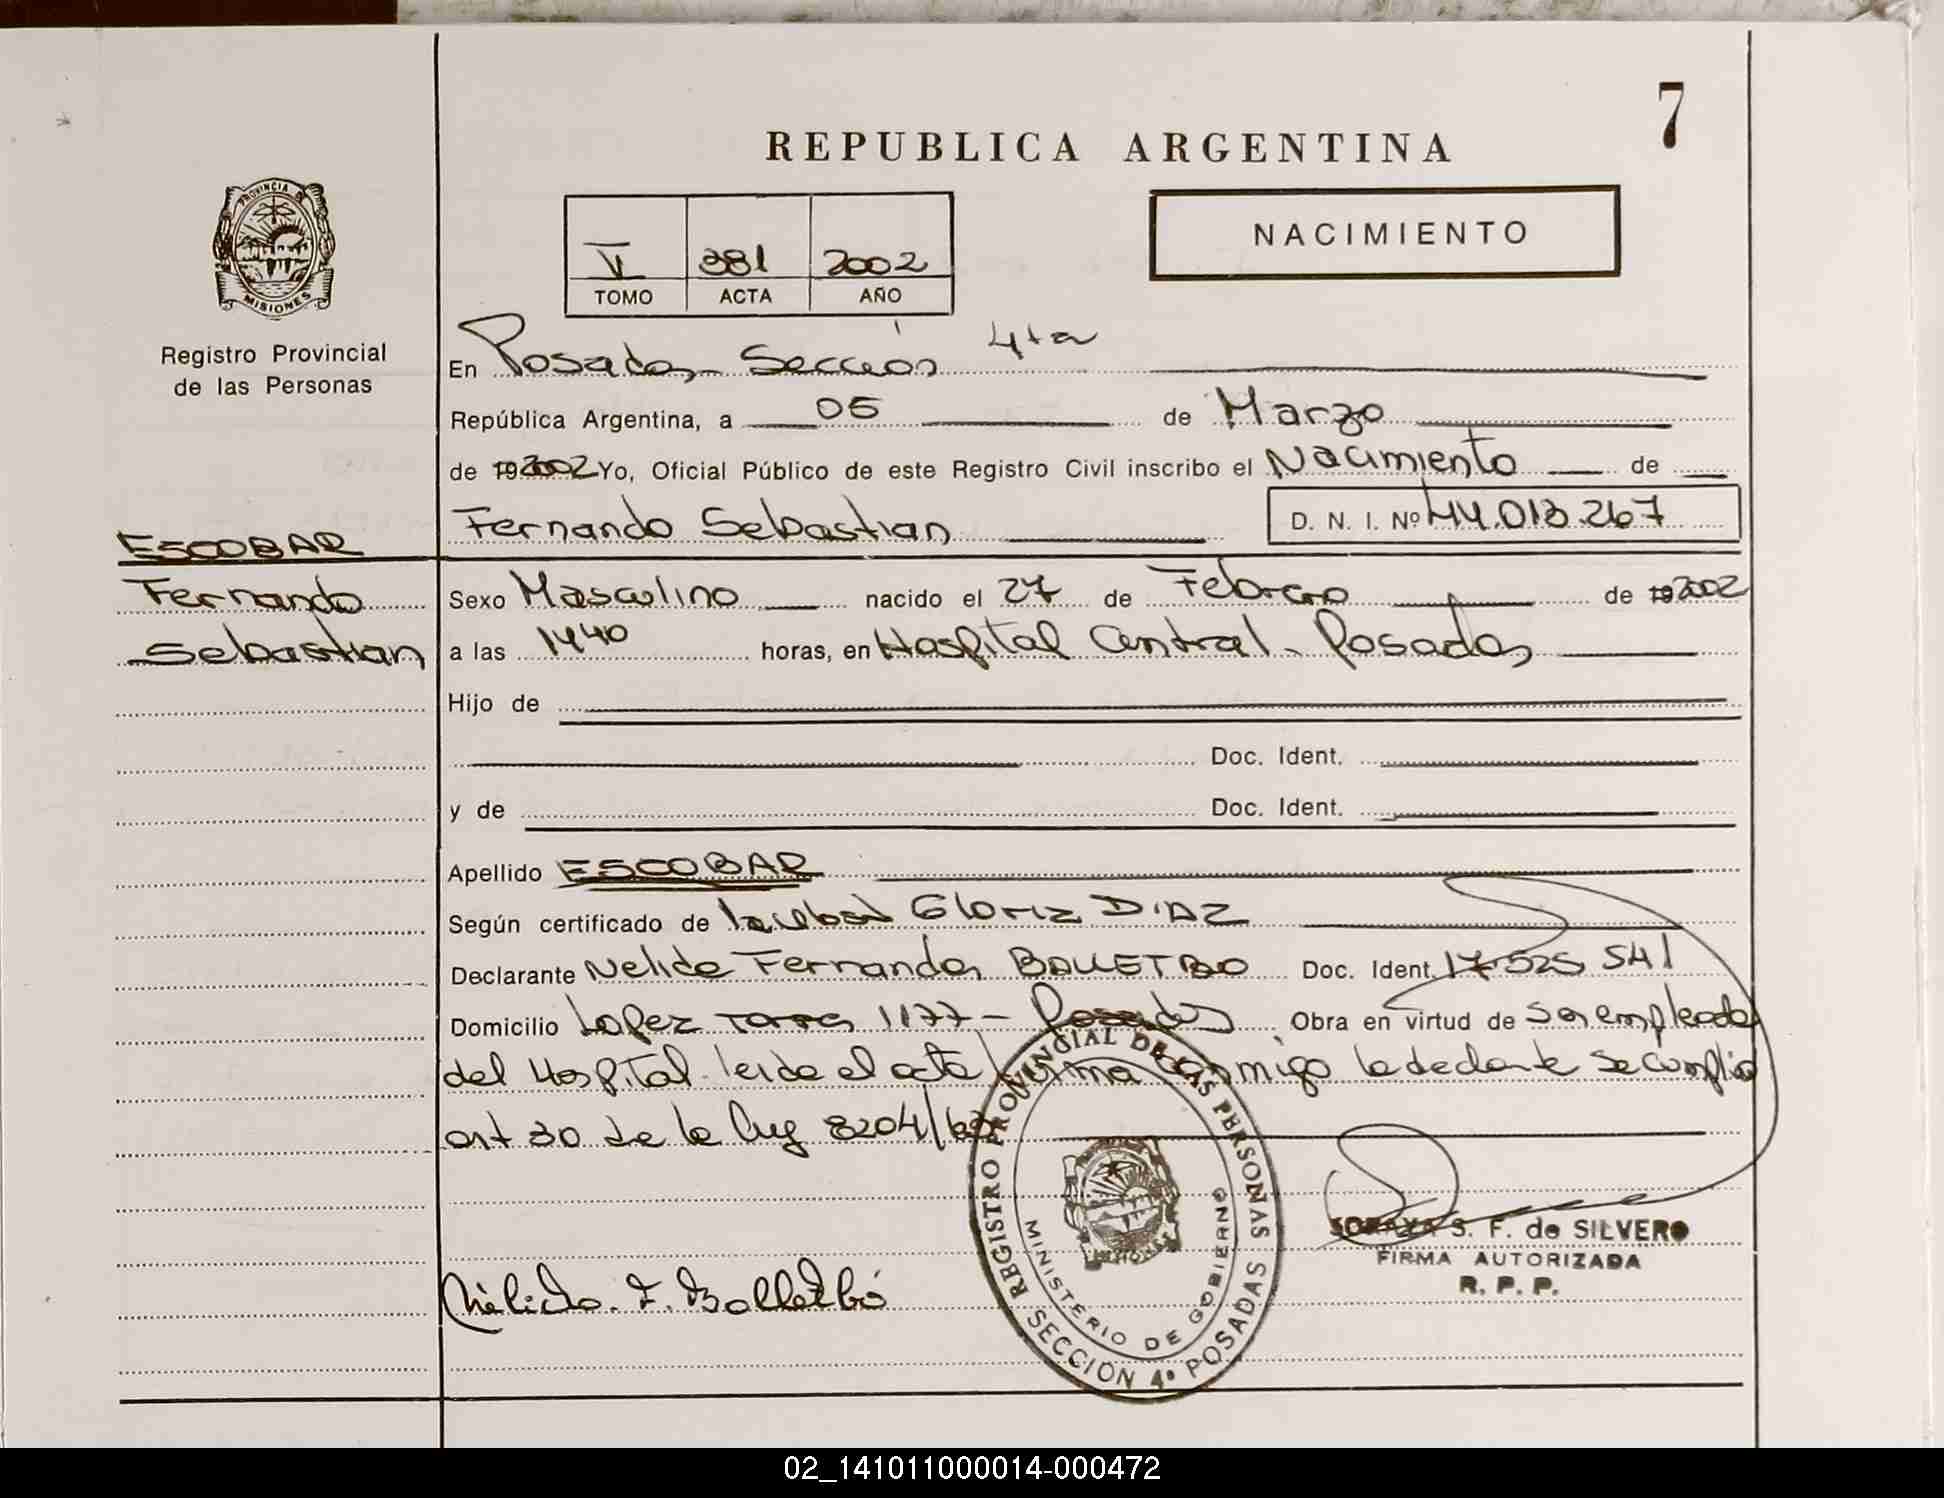 7
REPUBLICA ARGENTINA
NACIMIENTO
V 381 2002
TOMO ACTA AÑO
PROVINCIA DE MISIONES
Registro Provincial
de las Personas
En Posadas Sección 4ta
República Argentina, a 05 de Marzo
de 2002 Yo, Oficial Público de este Registro Civil inscribo el Nacimiento de
Fernando Sebastian D. N. I. Nº 44.013.267
ESCOBAR
Fernando
Sebastian
Sexo Masculino nacido el 27 de Febrero de 2002
a las 1440 horas, en Hospital Central - Posadas
Hijo de
Doc. Ident.
y de Doc. Ident.
Apellido ESCOBAR
Según certificado de Gloria DIAZ
Declarante Nelida Fernanda Doc. Ident. 17 525 541
Domicilio Lopez 1177 - Posadas Obra en virtud de ser empleada
del Hospital leida el acta firma conmigo la declarante se cumplio
art 30 de la ley 8204/63
REGISTRO PROVINCIAL DE LAS PERSONAS
MINISTERIO DE GOBIERNO
SECCIÓN 4º POSADAS
SORAYA S. F. de SILVERO
FIRMA AUTORIZADA
R. P. P.
Nélida F. Balletbó
02_141011000014-000472